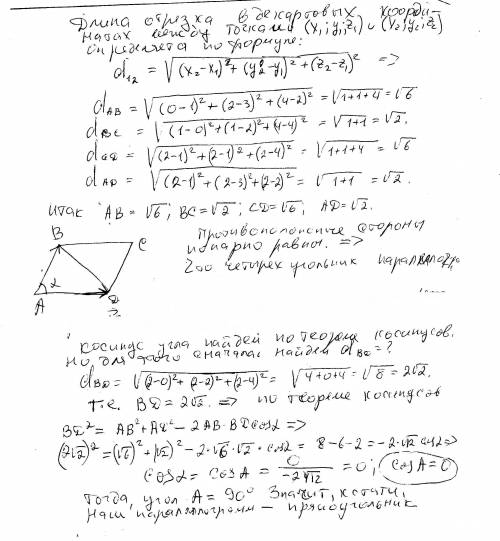 Длина отрезка в декартовых коорди-
натах между точками (x₁; y₁; z₁) и (x₂; y₂; z₂)
определяется по формуле:
d₁₂ = √((x₂-x₁)²+(y₂-y₁)²+(z₂-z₁)²) =>
d_AB = √((0-1)²+(2-3)²+(4-2)²) = √(1+1+4) = √6
d_BC = √((1-0)²+(1-2)²+(4-4)²) = √(1+1) = √2.
d_CD = √((2-1)²+(2-1)²+(2-4)²) = √(1+1+4) = √6
d_AD = √((2-1)²+(2-3)²+(2-2)²) = √(1+1) = √2.
Итак AB = √6; BC = √2; CD = √6; AD = √2.
B C
Противоположные стороны
попарно равны. =>
четырехугольник
A α
Косинус угла найдем по теореме косинусов.
Но для этого сначала найдем d_BD = ?
d_BD = √((2-0)²+(2-2)²+(2-4)²) = √(4+0+4) = √8 = 2√2.
Т.е. BD = 2√2. => по теореме косинусов
BD² = AB²+AD² - 2AB·BD cosα =>
(2√2)² = (√6)²+(√2)² - 2·√6·√2·cosα = 8-6-2 = -2·√12 cosα =>
cosα = cosA = 0/(-2√12) = 0; cosA = 0
Тогда, угол A = 90° Значит, кстати,
наш параллелограмм - прямоугольник